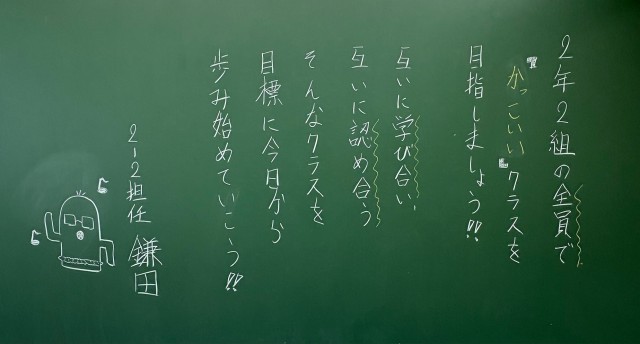 2年2組の全員で
『かっこいい』クラスを
目指しましょう!!
互いに学び合い、
互いに認め合う
そんなクラスを
目標に今日から
歩み始めていこう!!
2-2担任 鎌田